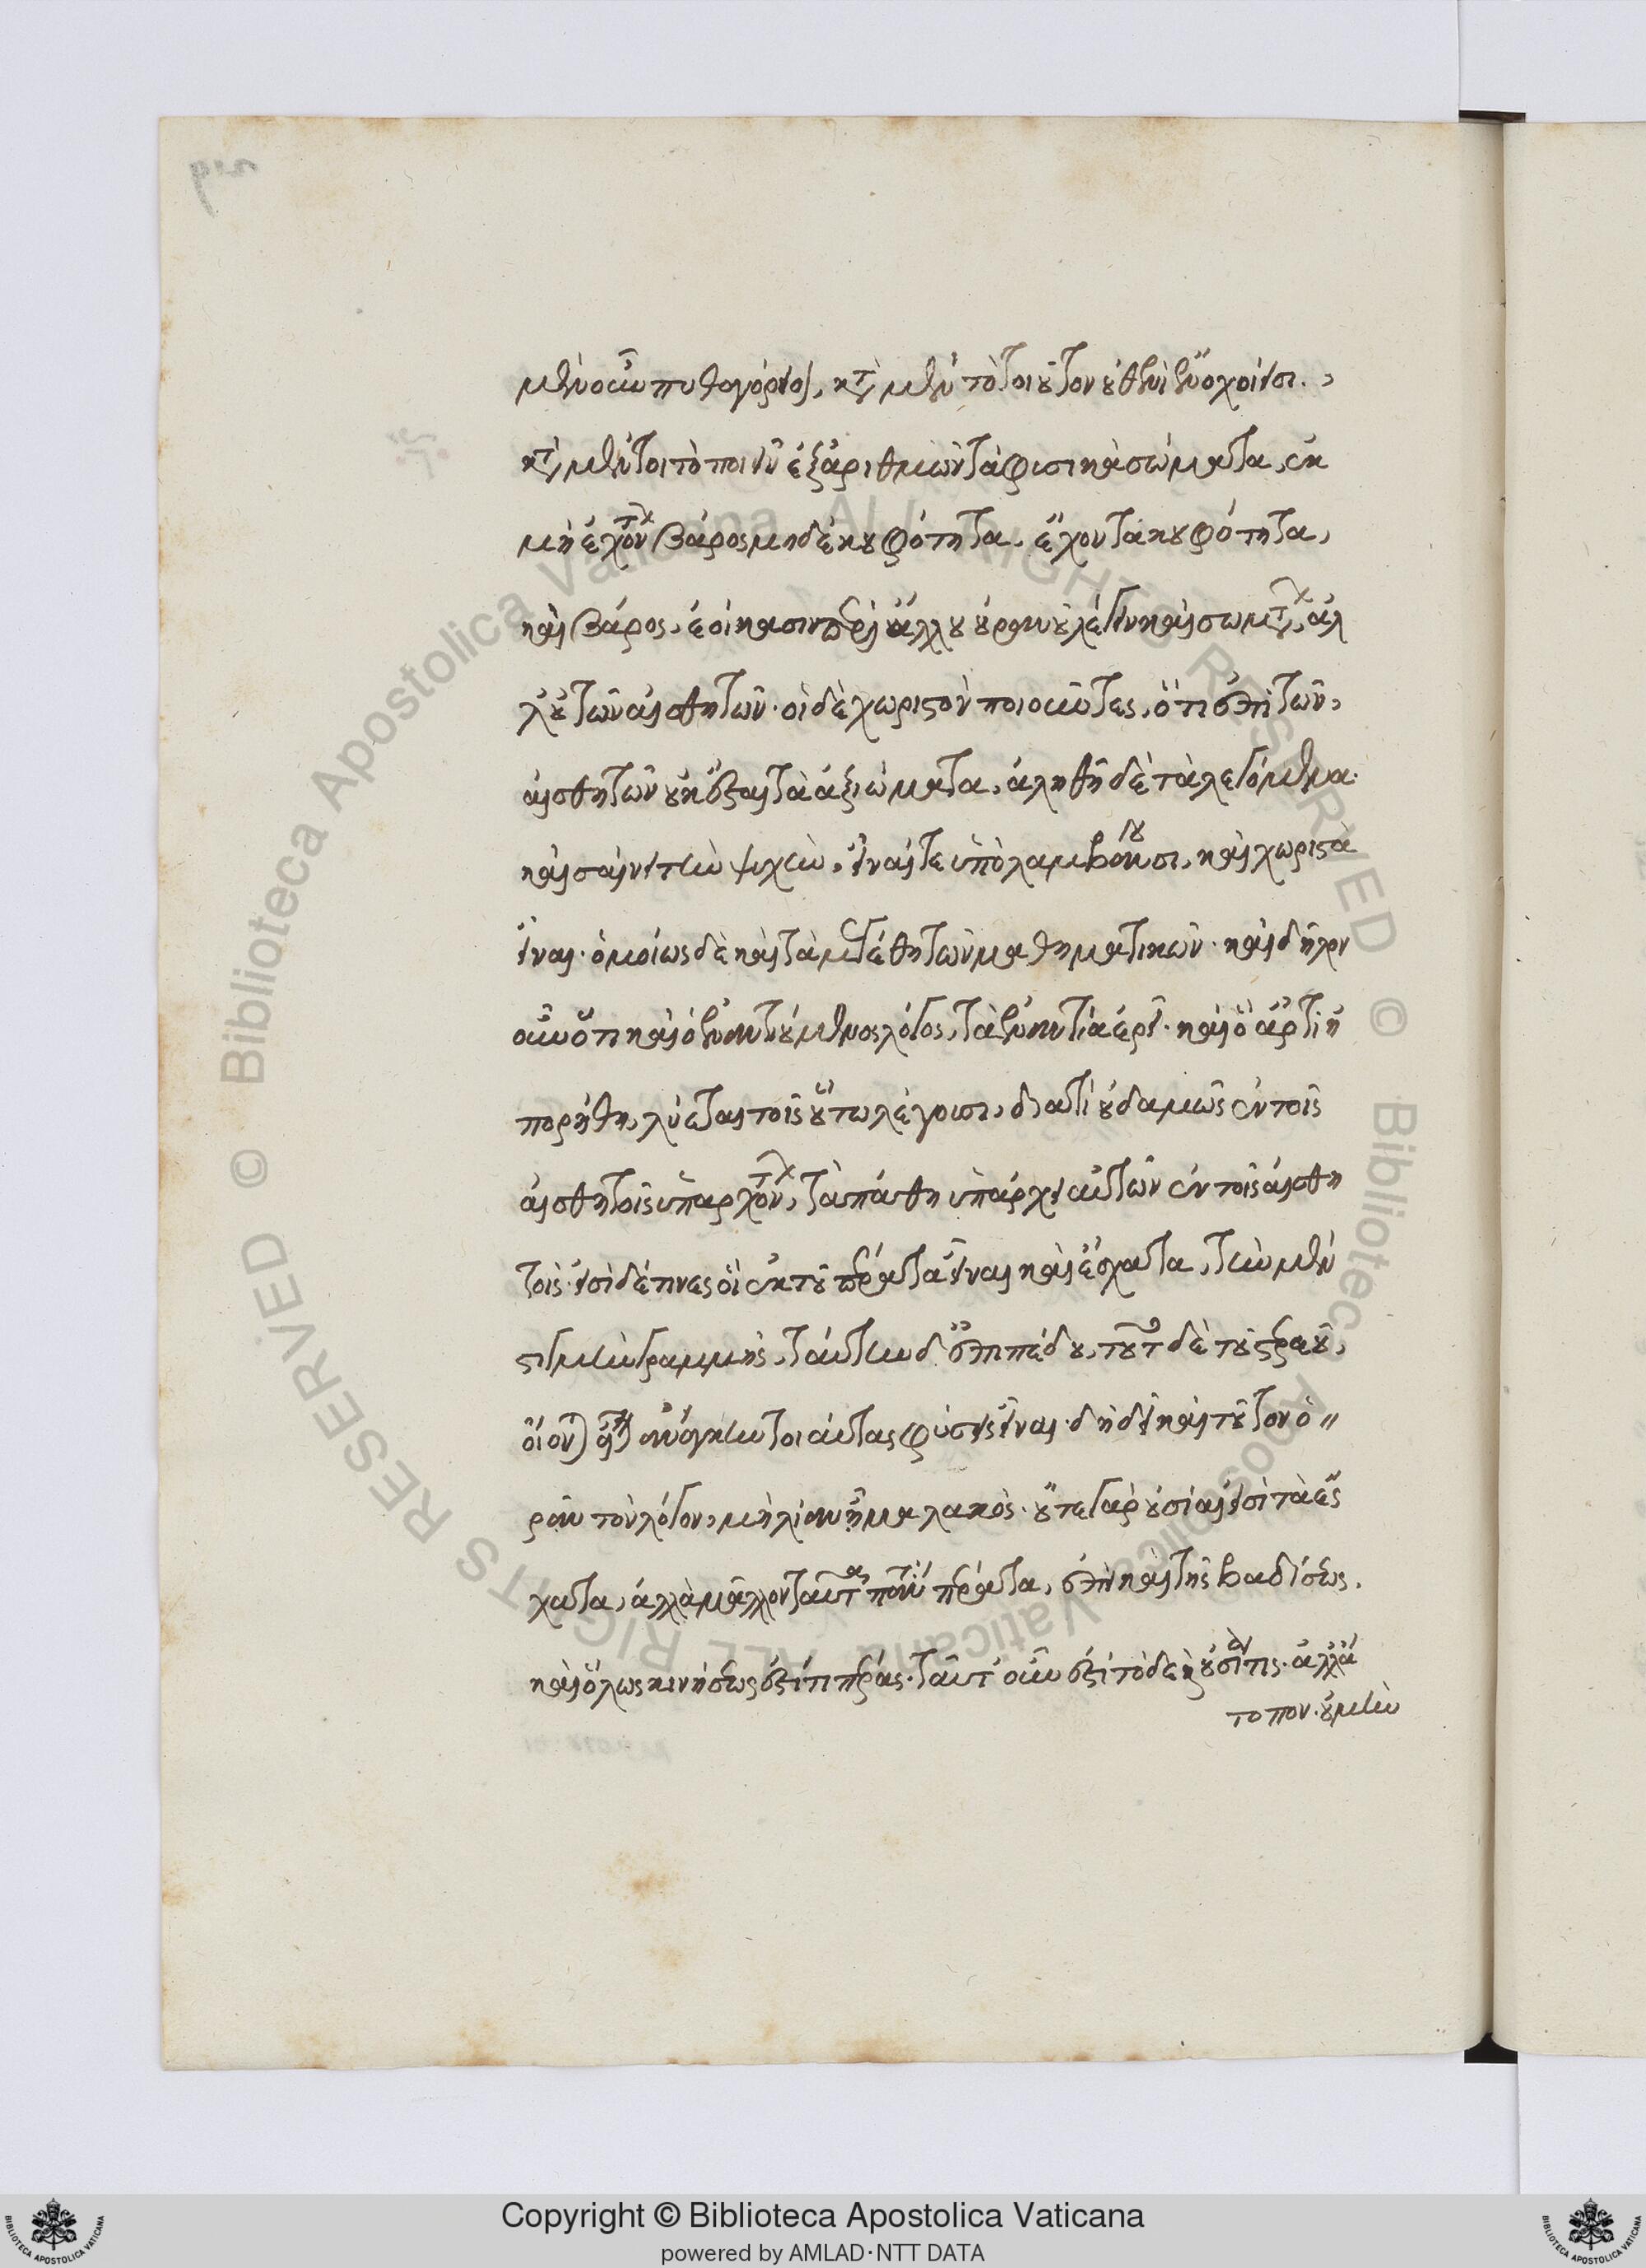 μὲν οὖν πυθαγόρειοι, κατὰ μὲν τὸ τοιοῦτον οὐθενὶ ἔνοχοί εἰσι.,
κατὰ μέντοι τὸ ποιεῖν ἐξ ἀριθμῶν τὰ φυσικὰ σώματα, ἐκ
μὴ ἐχόντων βάρος μηδὲ κουφότητα, ἔχοντα κουφότητα,
καὶ βάρος, ἐοίκασιν περὶ ἄλλου οὐρανοῦ λέγειν καὶ σωμάτων, ἀλ
λ' οὐ τῶν αἰσθητῶν· οἱ δὲ χωριστὸν ποιοῦντες, ὅτι ἐπὶ τῶν,
αἰσθητῶν οὐκ ἔσται τὰ ἀξιώματα, ἀληθῆ δὲ τὰ λεγόμενα·
καὶ σαίνει τὴν ψυχὴν, εἶναί τε ὑπολαμβάνουσι, καὶ χωριστὰ
εἶναι· ὁμοίως δὲ καὶ τὰ μεγέθη τῶν μαθηματικῶν· καὶ δῆλον
οὖν ὅτι καὶ ὁ ἐναντιούμενος λόγος, τὰ ἐναντία ἐρεῖ· καὶ ὃ ἄρτι ἠ
πορήθη, λύεται τοῖς οὕτω λέγουσι, διατί οὐδαμῶς ἐν τοῖς
αἰσθητοῖς ὑπαρχόντων, τὰ πάθη ὑπάρχει αὐτῶν ἐν τοῖς αἰσθη
τοῖς· εἰσὶ δέ τινες οἳ ἐκ τοῦ πέρατα εἶναι καὶ ἔσχατα, τὴν μὲν
στιγμὴν γραμμῆς, ταύτην δ' ἐπιπέδου, τοῦτο δὲ τοῦ στερεοῦ,
οἴονται εἶναι ἀνάγκην τοιαύτας φύσεις εἶναι· δὴ δεῖ καὶ τοῦτον ὁ〃
ρᾶν τὸν λόγον, μὴ λίαν ἦ μαλακὸς· οὔτε γὰρ οὐσίαι εἰσὶ τὰ ἔσ
χατα, ἀλλὰ μᾶλλον ταῦτα πάντα πέρατα, ἐπεὶ καὶ τῆς βαδίσεως.
καὶ ὅλως κινήσεως ἐστί τι πέρας· ταῦτ' οὖν ἐστί τόδε καὶ οὐσία τις· ἀλλ' ἄ
τοπον· οὐ μὴν